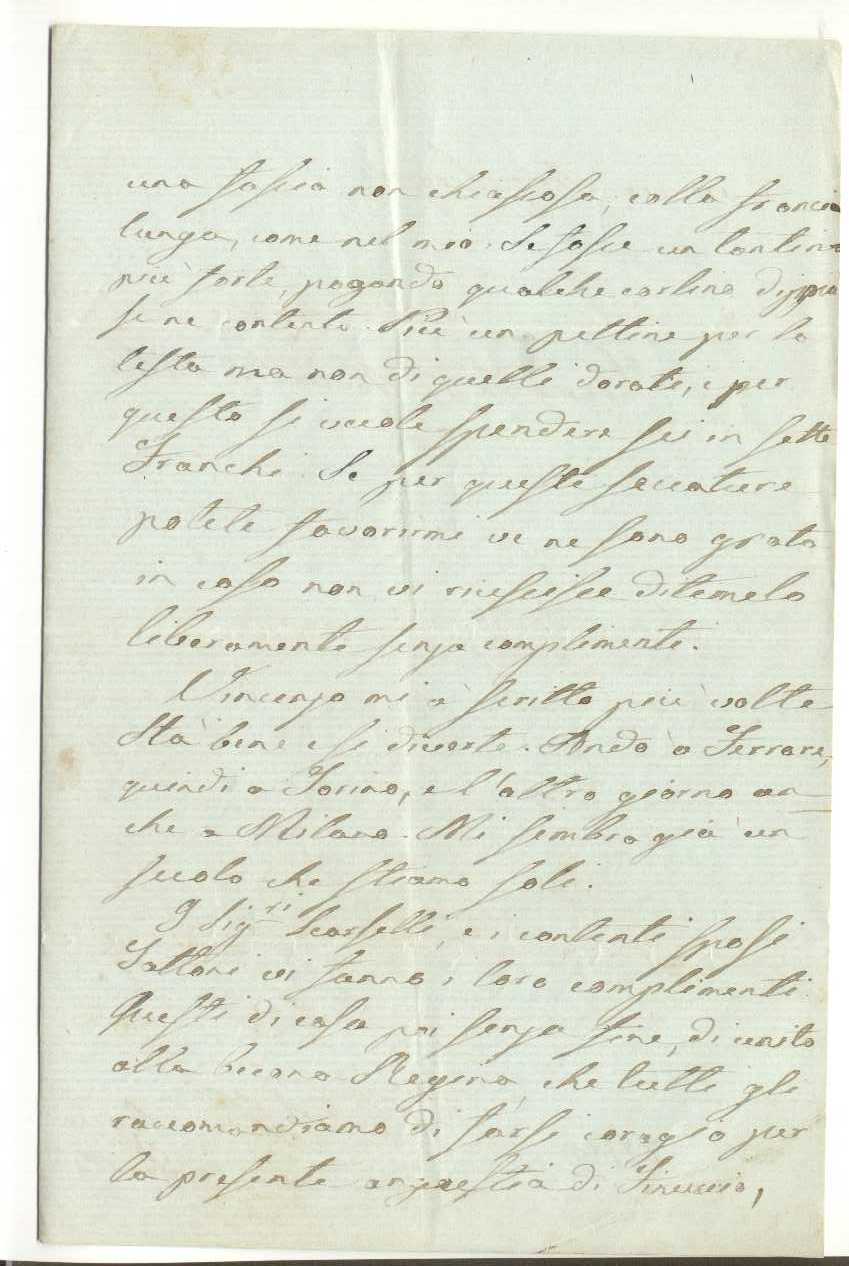 una fascia non chiassosa, colla francia
lunga, come nel mio. Se fosse un tantino
più forte, pagando qualche carlino dippiù
se ne contenti. Più un pettine per la
testa ma non di quelli dorati, e per
questo si vuole spendere sei in sette
Franchi. Se per queste seccature
potete favorirmi ve ne sono grata
in caso non vi riescisse ditemelo
liberamente senza complimenti.
Vincenzo mi à scritto più volte
Stà bene e si diverte. Andò a Ferrara,
quindi a Torino, e l'altro giorno an-
che a Milano. Mi sembra già un
secolo che stiamo soli.
I Sig.ri Scarselli, e i contenti sposi
Fattori vi fanno i loro complimenti.
Questi di casa poi senza fine, di unito
alla buona Regina, che tutti gli
raccomandiamo di farsi coragio per
la presente